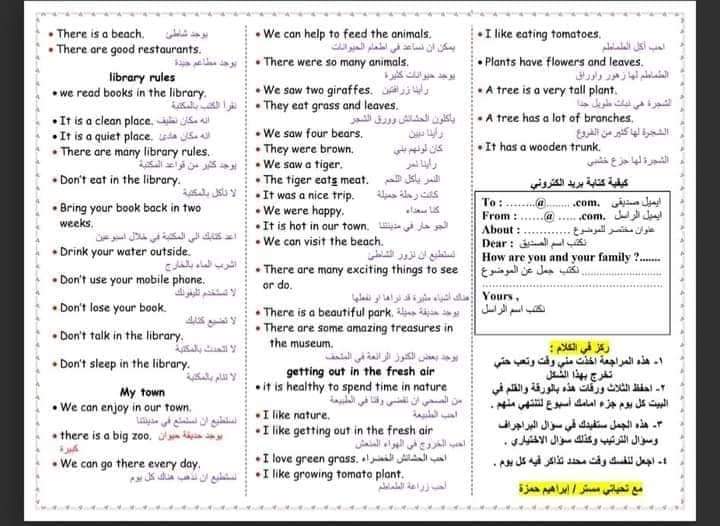 • There is a beach. يوجد شاطئ
• There are good restaurants.
يوجد مطاعم جيدة
library rules
• we read books in the library.
نقرأ الكتب بالمكتبة
• It is a clean place. انه مكان نظيف
• It is a quiet place. انه مكان هادئ
• There are many library rules.
يوجد كثير من قواعد المكتبة
• Don't eat in the library.
لا تأكل بالمكتبة
• Bring your book back in two
weeks.
اعد كتابك الى المكتبة في خلال اسبوعين
• Drink your water outside.
اشرب الماء بالخارج
• Don't use your mobile phone.
لا تستخدم تليفونك
• Don't lose your book.
لا تضيع كتابك
• Don't talk in the library.
لا تتحدث بالمكتبة
• Don't sleep in the library.
لا تنام بالمكتبة
My town
• We can enjoy in our town.
نستطيع ان نستمتع في مدينتنا
• there is a big zoo. يوجد حديقة حيوان
كبيرة
• We can go there every day.
نستطيع ان نذهب هناك كل يوم
• We can help to feed the animals.
يمكن ان نساعد في اطعام الحيوانات
• There were so many animals.
يوجد حيوانات كثيرة
• We saw two giraffes. رأينا زرافتين
• They eat grass and leaves.
يأكلون الحشائش وورق الشجر
• We saw four bears. رأينا دببن
• They were brown. كان لونهم بني
• We saw a tiger. رأينا نمر
• The tiger eats meat. النمر يأكل اللحم
• It was a nice trip. كانت رحلة جميلة
• We were happy. كنا سعداء
• It is hot in our town. الجو حار في مدينتنا
• We can visit the beach.
نستطيع ان نزور الشاطئ
• There are many exciting things to see
or do.
هناك أشياء مثيرة قد نراها او نفعلها
• There is a beautiful park. يوجد حديقة جميلة
• There are some amazing treasures in
the museum.
يوجد بعض الكنوز الرائعة في المتحف
getting out in the fresh air
• it is healthy to spend time in nature
من الصحي ان نقضي وقتا في الطبيعة
• I like nature. احب الطبيعة
• I like getting out in the fresh air
احب الخروج في الهواء المنعش
• I love green grass. احب الحشائش الخضراء
• I like growing tomato plant.
أحب زراعة الطماطم
• I like eating tomatoes.
احب أكل الطماطم
• Plants have flowers and leaves.
الطماطم لها زهور واوراق
• A tree is a very tall plant.
الشجرة هي نبات طويل جدا
• A tree has a lot of branches.
الشجرة لها كثير من الفروع
• It has a wooden trunk.
الشجرة لها جزع خشبي
كيفية كتابة بريد الكتروني
To : .......@........ .com. ايميل صديقي
From : ......@..... .com. ايميل الراسل
About : ............ عنوان مختصر للموضوع
Dear : نكتب اسم الصديق
How are you and your family ?.......
نكتب جمل عن الموضوع ......................
..............................................
Yours ,
نكتب اسم الراسل
ركز في الكلام :
١- هذه المراجعة اخذت مني وقت وتعب حتي
تخرج بهذا الشكل
٢- احفظ الثلاث ورقات هذه بالورقة والقلم في
البيت كل يوم جزء امامك أسبوع لتنتهي منهم .
٣- هذه الجمل ستفيدك في سؤال البراجراف
وسؤال الترتيب وكذلك سؤال الاختياري .
٤- اجعل لنفسك وقت محدد تذاكر فيه كل يوم .
مع تحياتي مستر / إبراهيم حمزة